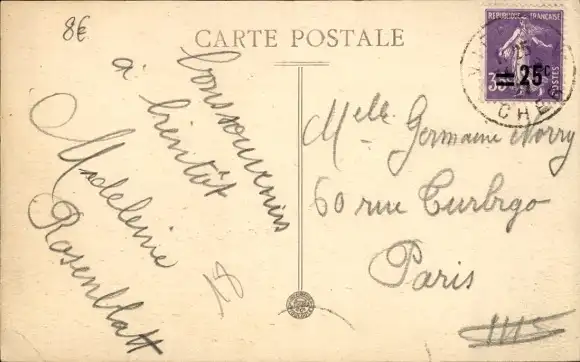 8€
CARTE POSTALE
REPUBLIQUE FRANÇAISE
25c
POSTES
CHE
bons souvenirs
à bientôt
Madeleine
Rosenblatt
Melle Germaine Norry
60 rue Turbigo
Paris